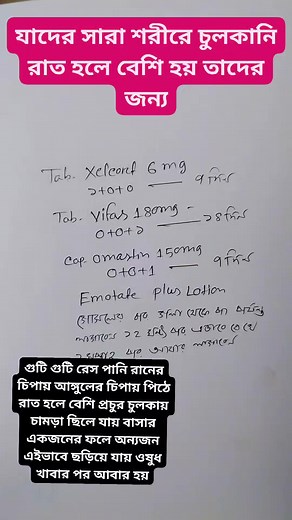 যাদের সারা শরীরে চুলকানি
রাত হলে বেশি হয় তাদের
জন্য
Tab. Xelcort 6mg
১+০+০ — ৭ দিন
Tab. Vifas 180mg —
০+০+১ — ১৪ দিন
Cap. Omastin 150mg
0+0+1 — ৭ দিন
Emotate plus Lotion
গোসলের পর গলা থেকে পা পর্যন্ত
লাগাবেন ১২ ঘন্টা পর
পর আবার লাগাবেন
গুটি গুটি রেস পানি রানের
চিপায় আঙ্গুলের চিপায় পিঠে
রাত হলে বেশি প্রচুর চুলকায়
চামড়া ছিলে যায় বাসার
একজনের ফলে অন্যজন
এইভাবে ছড়িয়ে যায় ওষুধ
খাবার পর আবার হয়